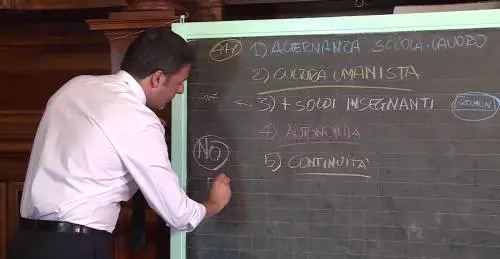 1) ALTERNANZA SCUOLA-LAVORO
2) CULTURA UMANISTA
← 3) + SOLDI INSEGNANTI
COMUNI
4) AUTONOMIA
5) CONTINUITA'
NO